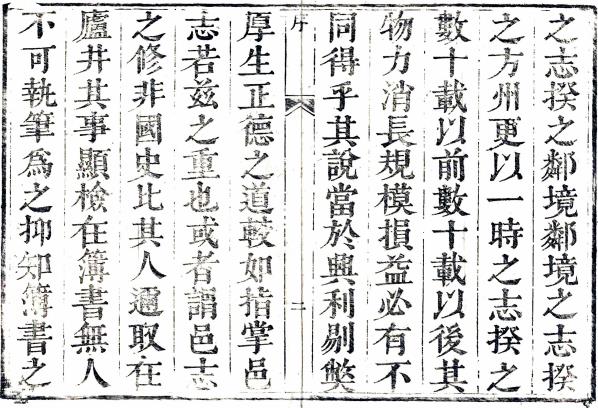 之志揆之鄰境鄰境之志揆
之方州更以一時之志揆之
數十載以前數十載以後其
物力消長規模損益必有不
同得乎其說當於興利剔獘
序 二
厚生正德之道較如指掌邑
志若兹之重也或者謂邑志
之修非國史比其人邇取在
廬井其事顯檢在簿書無人
不可執筆爲之抑知簿書之